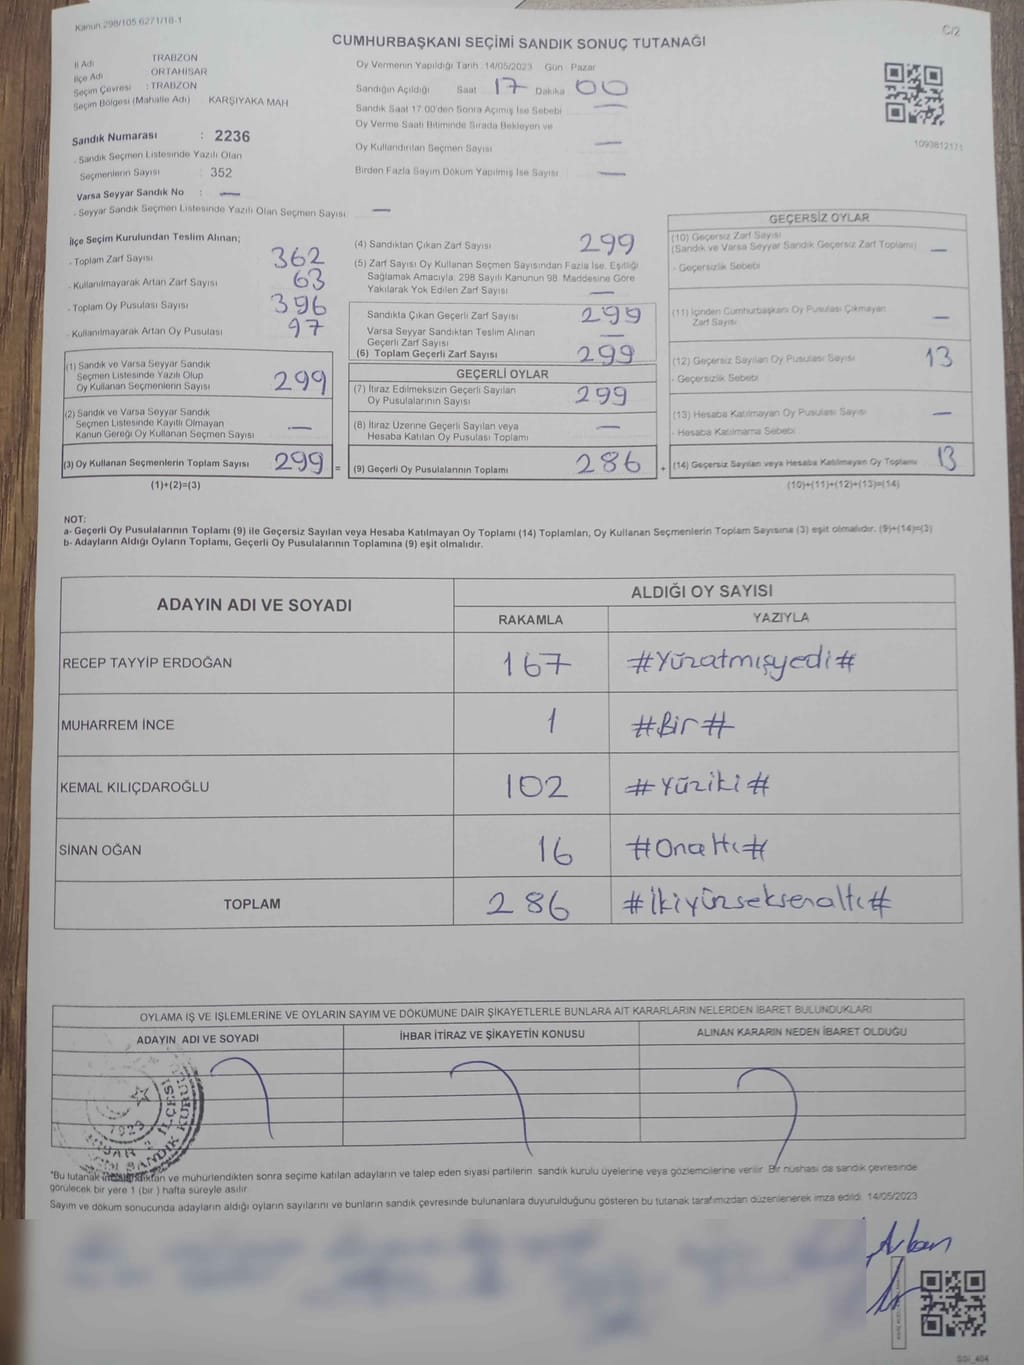 Kanun 298/105 6271/18-1
C/2
CUMHURBAŞKANI SEÇİMİ SANDIK SONUÇ TUTANAĞI
İl Adı TRABZON
İlçe Adı ORTAHİSAR
Seçim Çevresi : TRABZON
Seçim Bölgesi (Mahalle Adı) KARŞIYAKA MAH
Sandık Numarası : 2236
- Sandık Seçmen Listesinde Yazılı Olan
Seçmenlerin Sayısı : 352
Varsa Seyyar Sandık No : —
- Seyyar Sandık Seçmen Listesinde Yazılı Olan Seçmen Sayısı —
Oy Vermenin Yapıldığı Tarih 14/05/2023 Gün Pazar
Sandığın Açıldığı Saat 17 Dakika 00
Sandık Saat 17.00'den Sonra Açılmış İse Sebebi —
Oy Verme Saati Bitiminde Sırada Bekleyen ve
Oy Kullandırılan Seçmen Sayısı —
Birden Fazla Sayım Döküm Yapılmış İse Sayısı —
1093812171
İlçe Seçim Kurulundan Teslim Alınan;
- Toplam Zarf Sayısı 362
- Kullanılmayarak Artan Zarf Sayısı 63
- Toplam Oy Pusulası Sayısı 396
- Kullanılmayarak Artan Oy Pusulası 97
(1) Sandık ve Varsa Seyyar Sandık
Seçmen Listesinde Yazılı Olup
Oy Kullanan Seçmenlerin Sayısı 299
(2) Sandık ve Varsa Seyyar Sandık
Seçmen Listesinde Kayıtlı Olmayan
Kanun Gereği Oy Kullanan Seçmen Sayısı —
(3) Oy Kullanan Seçmenlerin Toplam Sayısı 299 =
(1)+(2)=(3)
(4) Sandıktan Çıkan Zarf Sayısı 299
(5) Zarf Sayısı Oy Kullanan Seçmen Sayısından Fazla İse, Eşitliği
Sağlamak Amacıyla, 298 Sayılı Kanunun 98. Maddesine Göre
Yakılarak Yok Edilen Zarf Sayısı —
Sandıkta Çıkan Geçerli Zarf Sayısı 299
Varsa Seyyar Sandıktan Teslim Alınan
Geçerli Zarf Sayısı —
(6) Toplam Geçerli Zarf Sayısı 299
GEÇERLİ OYLAR
(7) İtiraz Edilmeksizin Geçerli Sayılan
Oy Pusulalarının Sayısı 299
(8) İtiraz Üzerine Geçerli Sayılan veya
Hesaba Katılan Oy Pusulası Toplamı —
(9) Geçerli Oy Pusulalarının Toplamı 286 +
GEÇERSİZ OYLAR
(10) Geçersiz Zarf Sayısı
(Sandık ve Varsa Seyyar Sandık Geçersiz Zarf Toplamı) —
- Geçersizlik Sebebi
(11) İçinden Cumhurbaşkanı Oy Pusulası Çıkmayan
Zarf Sayısı —
(12) Geçersiz Sayılan Oy Pusulası Sayısı 13
- Geçersizlik Sebebi
(13) Hesaba Katılmayan Oy Pusulası Sayısı —
- Hesaba Katılmama Sebebi
(14) Geçersiz Sayılan veya Hesaba Katılmayan Oy Toplamı 13
(10)+(11)+(12)+(13)=(14)
NOT:
a- Geçerli Oy Pusulalarının Toplamı (9) ile Geçersiz Sayılan veya Hesaba Katılmayan Oy Toplamı (14) Toplamları, Oy Kullanan Seçmenlerin Toplam Sayısına (3) eşit olmalıdır. (9)+(14)=(3)
b- Adayların Aldığı Oyların Toplamı, Geçerli Oy Pusulalarının Toplamına (9) eşit olmalıdır.
ADAYIN ADI VE SOYADI
ALDIĞI OY SAYISI
RAKAMLA YAZIYLA
RECEP TAYYİP ERDOĞAN 167 #Yüzatmışyedi#
MUHARREM İNCE 1 #Bir#
KEMAL KILIÇDAROĞLU 102 #Yüziki#
SİNAN OĞAN 16 #Onaltı#
TOPLAM 286 #İkiyüzseksenaltı#
OYLAMA İŞ VE İŞLEMLERİNE VE OYLARIN SAYIM VE DÖKÜMÜNE DAİR ŞİKAYETLERLE BUNLARA AİT KARARLARIN NELERDEN İBARET BULUNDUKLARI
ADAYIN ADI VE SOYADI İHBAR İTİRAZ VE ŞİKAYETİN KONUSU ALINAN KARARIN NEDEN İBARET OLDUĞU
1923
İLÇESİ
SANDIK KURULU
*Bu tutanak ve mühürlendikten sonra seçime katılan adayların ve talep eden siyasi partilerin sandık kurulu üyelerine veya gözlemcilerine verilir. Bir nüshası da sandık çevresinde
görülecek bir yere 1 (bir ) hafta süreyle asılır.
Sayım ve döküm sonucunda adayların aldığı oyların sayılarını ve bunların sandık çevresinde bulunanlara duyurulduğunu gösteren bu tutanak tarafımızdan düzenlenerek imza edildi. 14/05/2023